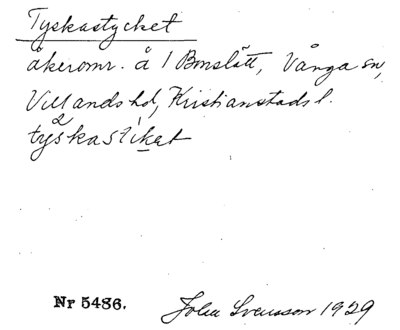 Tyskastycket
åkeromr. å 1 Bmslätt, Vånga sn,
Villands hd, Kristianstads l.
2
tyskastiket
Nr 5486. John Svensson 1929